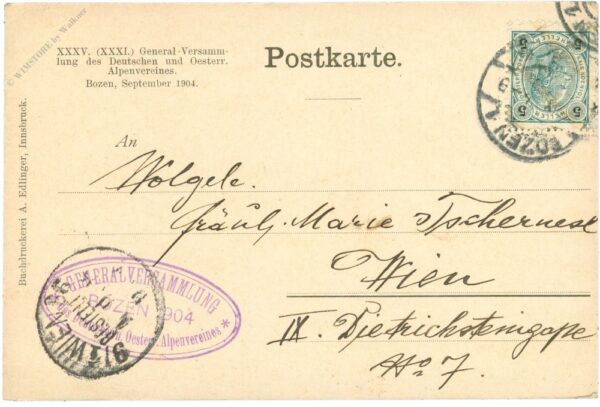 XXXV. (XXXI.) General-Versamm-
lung des Deutschen und Oesterr.
Alpenvereines.
Bozen, September 1904.
Postkarte.
5 5
BOZEN 1
© WIMSTORE by Walkner
Buchdruckerei A. Edlinger, Innsbruck.
An
Wolgeb.
Fräul. Marie Tschernese
Wien
IX. Dietrichsteingasse
No 7.
GENERALVERSAMMLUNG
BOZEN 1904
des Deutsch. u. Oesterr. Alpenvereines *
9/3 WIEN
BESTELLT